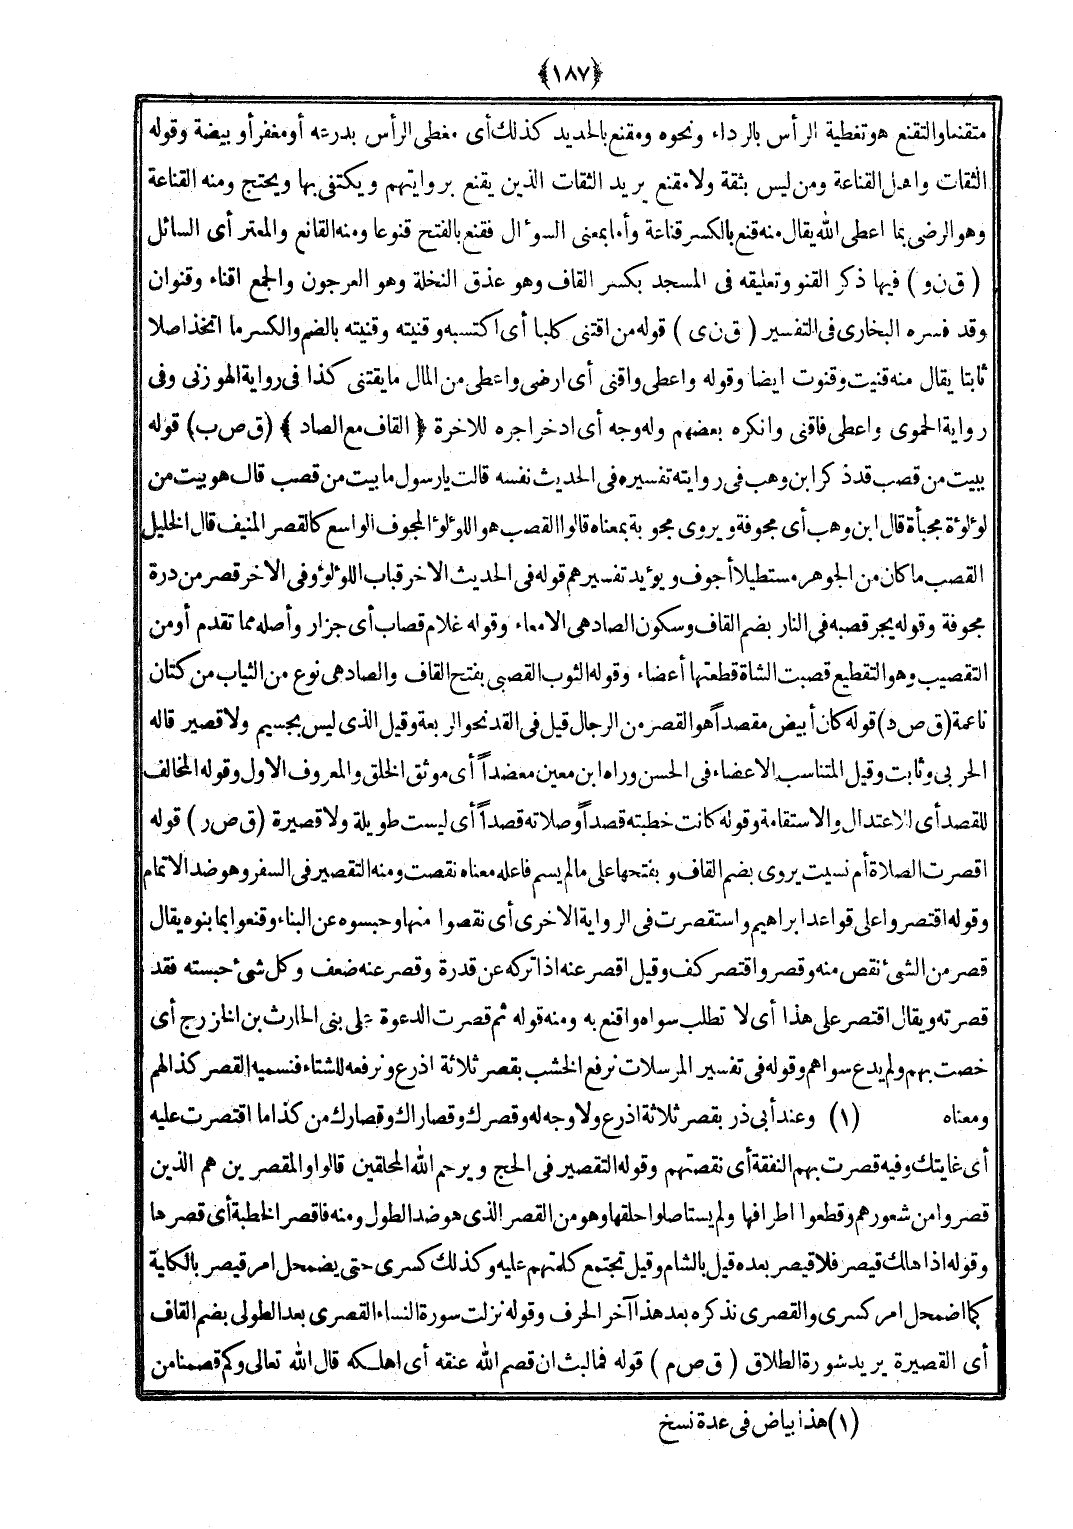 ﴿١٨٧﴾
متقنعا والتقنع هو تغطية الرأس بالرداء ونحوه ومقنع بالحديد كذلك أى مغطى الرأس بدرعه أو مغفر أو بيضة وقوله
الثقات واهل القناعة ومن ليس بثقة ولا مقنع يريد الثقات الذين يقنع بروايتهم ويكتفى بها ويحتج ومنه القناعة
وهو الرضى بما اعطى الله يقال منه قنع بالكسر قناعة وأما بمعنى السوءال فقنع بالفتح قنوعا ومنه القانع والمعتر أى السائل
( ق ن و ) فيها ذكر القنو وتعليقه فى المسجد بكسر القاف وهو عذق النخلة وهو العرجون والجمع اقناء وقنوان
وقد فسره البخارى فى التفسير ( ق ن ى ) قوله من اقتنى كلبا أى اكتسبه وقنيته وقنيته بالضم والكسر ما اتخذ اصلا
ثابتا يقال منه قنيت وقنوت ايضا وقوله واعطى واقنى أى ارضى واعطى من المال ما يقتنى كذا فى رواية الهوزنى وفى
رواية الحموى واعطى فاقنى وانكره بعضهم وله وجه أى ادخر اجره للاخرة ﴿ القاف مع الصاد ﴾ (ق ص ب) قوله
ببيت من قصب قد ذكر ابن وهب فى روايته تفسيره فى الحديث نفسه قالت يا رسول ما بيت من قصب قال هو بيت من
لوءلوءة مجبأة قال ابن وهب أى مجوفة ويروى مجوبة بمعناه قالوا القصب هو اللوءلوء المجوف الواسع كالقصر المنيف قال الخليل
القصب ما كان من الجوهر مستطيلا أجوف ويوءيد تفسيرهم قوله فى الحديث الاخر قباب اللوءلوء وفى الاخر قصر من درة
مجوفة وقوله يجر قصبه فى النار بضم القاف وسكون الصاد هى الامعاء وقوله غلام قصاب أى جزار وأصله مما تقدم أو من
التقصيب وهو التقطيع قصبت الشاة قطعتها أعضاء وقوله الثوب القصبى بفتح القاف والصاد هى نوع من الثياب من كتان
ناعمة (ق ص د) قوله كان أبيض مقصداً هو القصر من الرجال قيل فى القد نحو الربعة وقيل الذى ليس بجسيم ولا قصير قاله
الحربى وثابت وقيل المتناسب الاعضاء فى الحسن ورواه ابن معين معضداً أى موثق الخلق والمعروف الاول وقوله المخالف
للقصد أى الاعتدال والاستقامة وقوله كانت خطبته قصداً وصلاته قصداً أى ليست طويلة ولا قصيرة (ق ص ر) قوله
اقصرت الصلاة أم نسيت يروى بضم القاف وبفتحها على ما لم يسم فاعله معناه نقصت ومنه التقصير فى السفر وهو ضد الاتمام
وقوله اقتصروا على قواعد ابراهيم واستقصرت فى الرواية الاخرى أى نقصوا منها وحبسوه عن البناء وقنعوا بما بنوه يقال
قصر من الشىء نقص منه وقصر واقتصر كف وقيل اقصر عنه اذا تركه عن قدرة وقصر عنه ضعف وكل شىء حبسته فقد
قصرته ويقال اقتصر على هذا أى لا تطلب سواه واقنع به ومنه قوله ثم قصرت الدعوة على بنى الحارث بن الخزرج أى
خصت بهم ولم يدع سواهم وقوله فى تفسير المرسلات نرفع الخشب بقصر ثلاثة اذرع ونرفعه للشتاء فنسميه القصر كذا لهم
ومعناه (١) وعند أبى ذر بقصر ثلاثة اذرع ولا وجه له وقصرك وقصاراك وقصارك من كذا ما اقتصرت عليه
أى غايتك وفيه قصرت بهم النفقة أى نقصتهم وقوله التقصير فى الحج ويرحم الله المحلقين قالوا والمقصرين هم الذين
قصروا من شعورهم وقطعوا اطرافها ولم يستاصلوا حلقها وهو من القصر الذى هو ضد الطول ومنه فاقصر الخطبة أى قصرها
وقوله اذا هلك قيصر فلا قيصر بعده قيل بالشام وقيل تجتمع كلمتهم عليه وكذلك كسرى حتى يضمحل امر قيصر بالكلية
كما اضمحل امر كسرى والقصرى نذكره بعد هذا آخر الحرف وقوله نزلت سورة النساء القصرى بعد الطولى بضم القاف
أى القصيرة يريد سورة الطلاق ( ق ص م ) قوله فما لبث ان قصم الله عنقه أى اهلكه قال الله تعالى وكم قصمنا من
(١) هذا بياض فى عدة نسخ